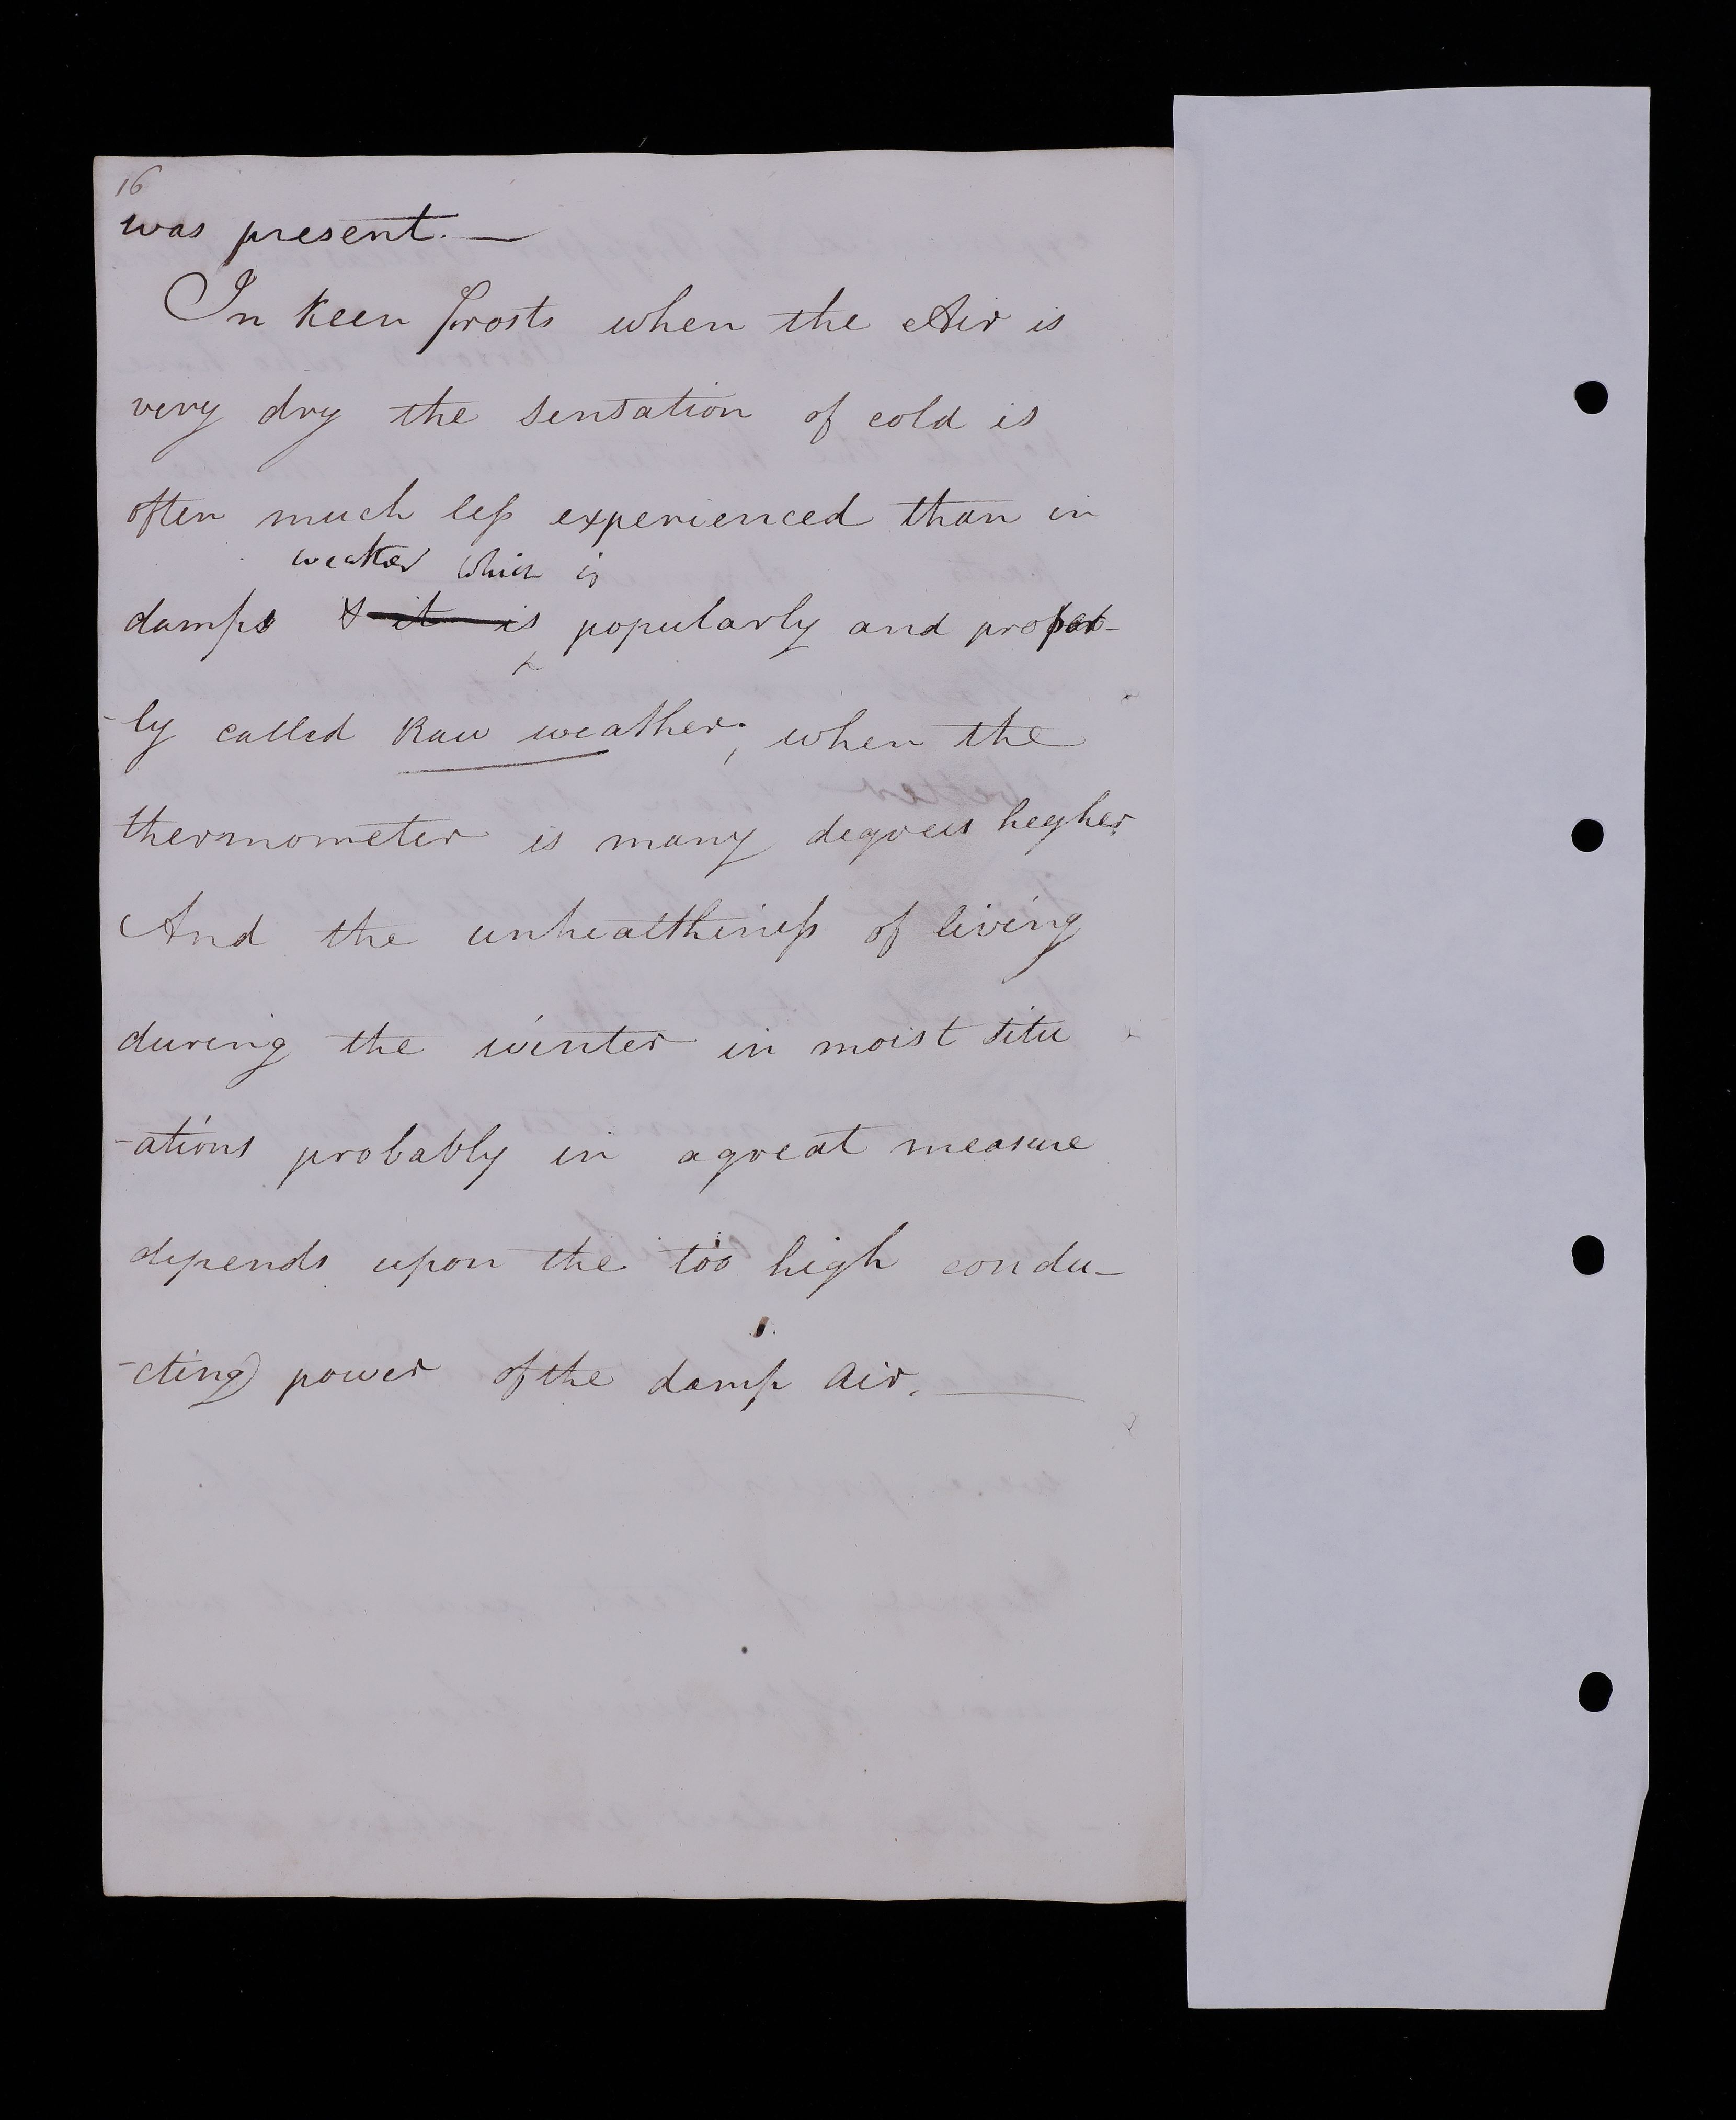 16
was present. —
In Keen frosts when the Air is
very dry the sensation of cold is
often much less experienced than in
weather which is
damp & it is popularly and proper-
-ly called Raw weather; when the
thermometer is many degrees hegher
And the unhealthiness of living
during the winter in moist situ
-ations probably in a great measure
depends upon the too high condu-
-cting power of the damp Air. —